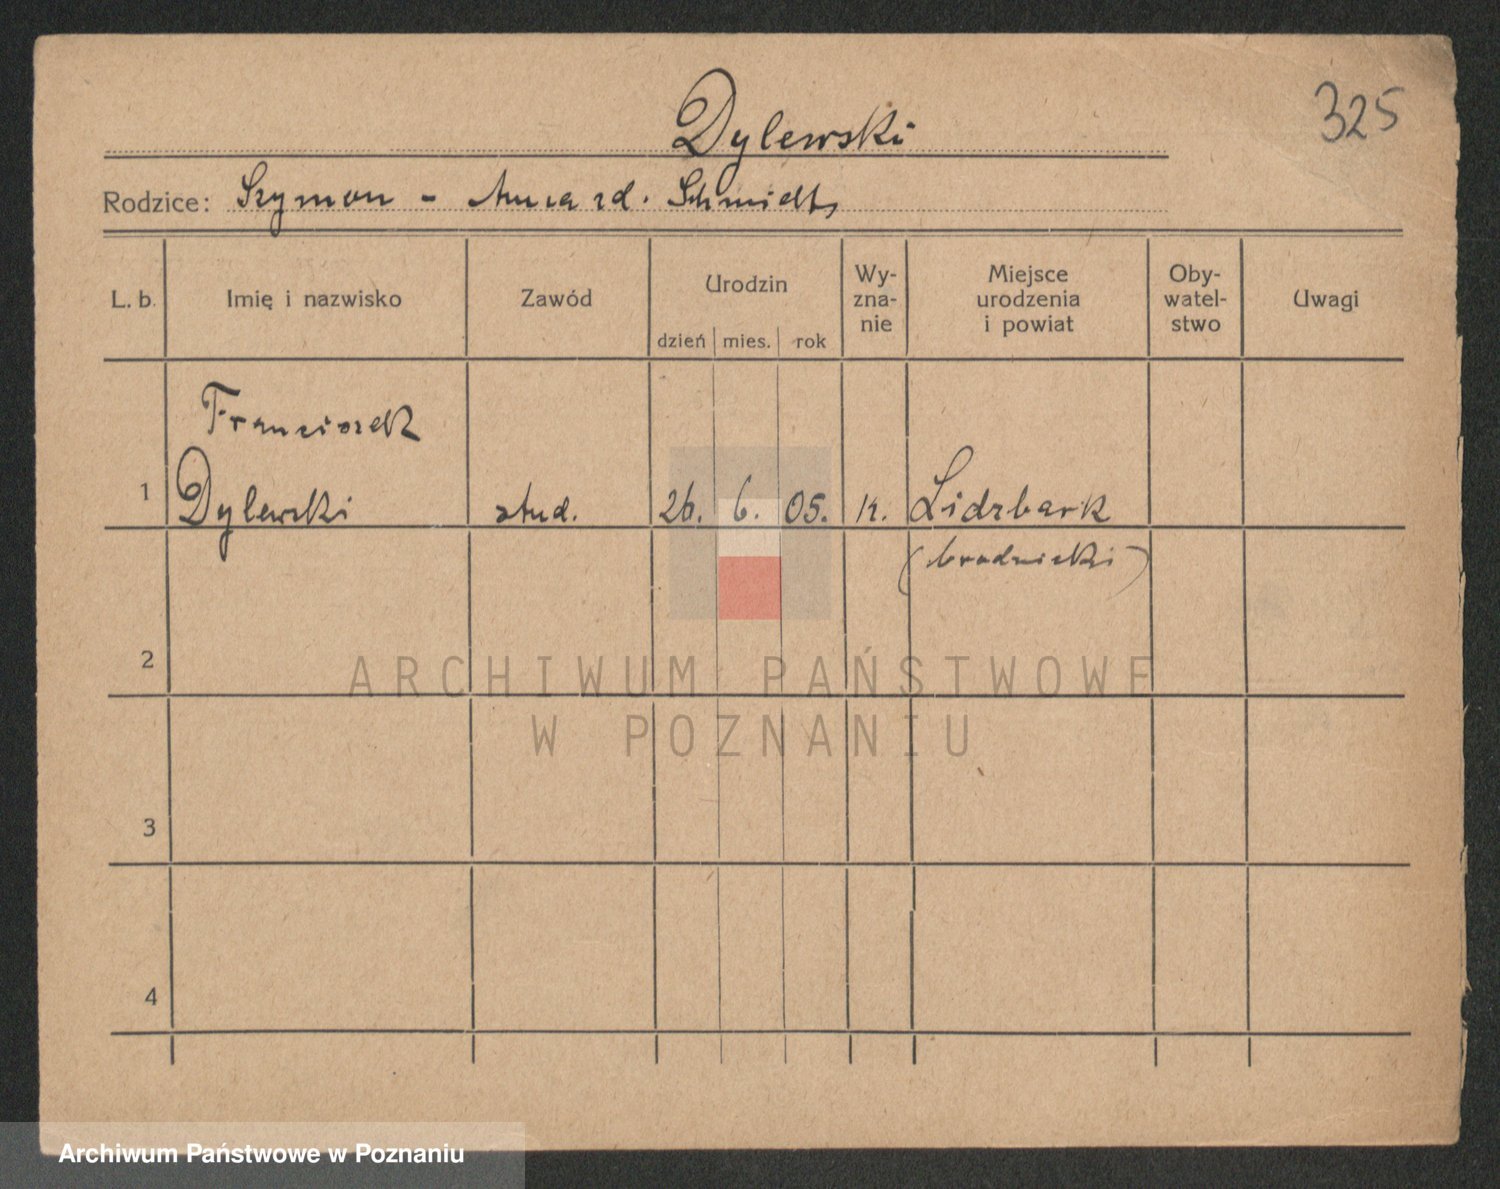 325
Dylewski
Rodzice: Szymon - Anna rd. Schmidt
L. b. Imię i nazwisko Zawód Urodzin dzień mies. rok Wy-zna-nie Miejsce urodzenia i powiat Oby-watel-stwo Uwagi
Franciszek
1 Dylewski stud. 26. 6. 05. k. Lidzbark
(brodnicki)
2
ARCHIWUM PAŃSTWOWE
W POZNANIU
3
4
Archiwum Państwowe w Poznaniu